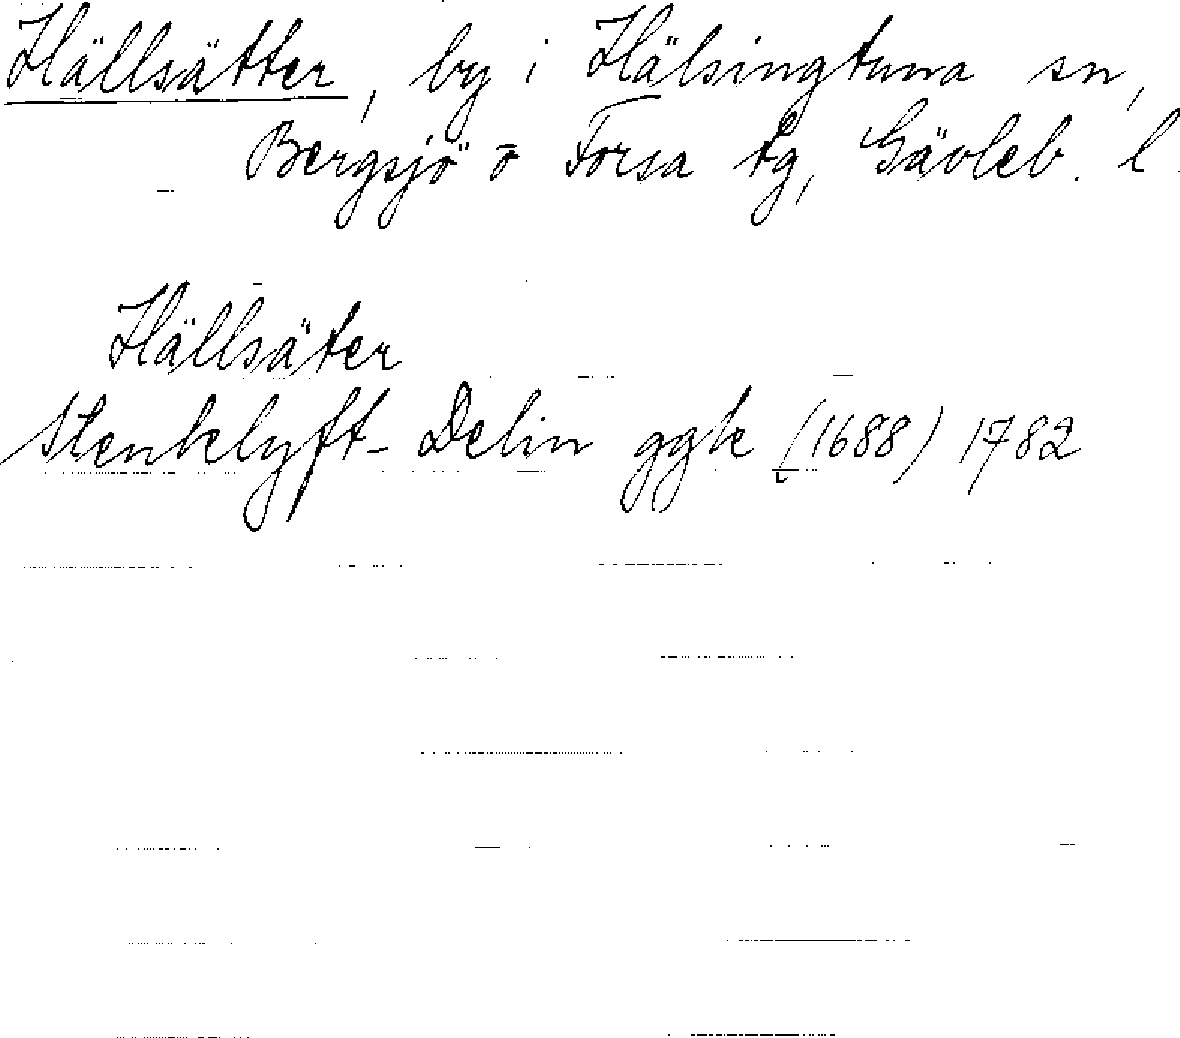 Hällsätter, by i Hälsingtuna sn,
Bergsjö o Forsa tg, Gävleb. l
Hällsäter
Stenklyft- Delin ggk (1688) 1782